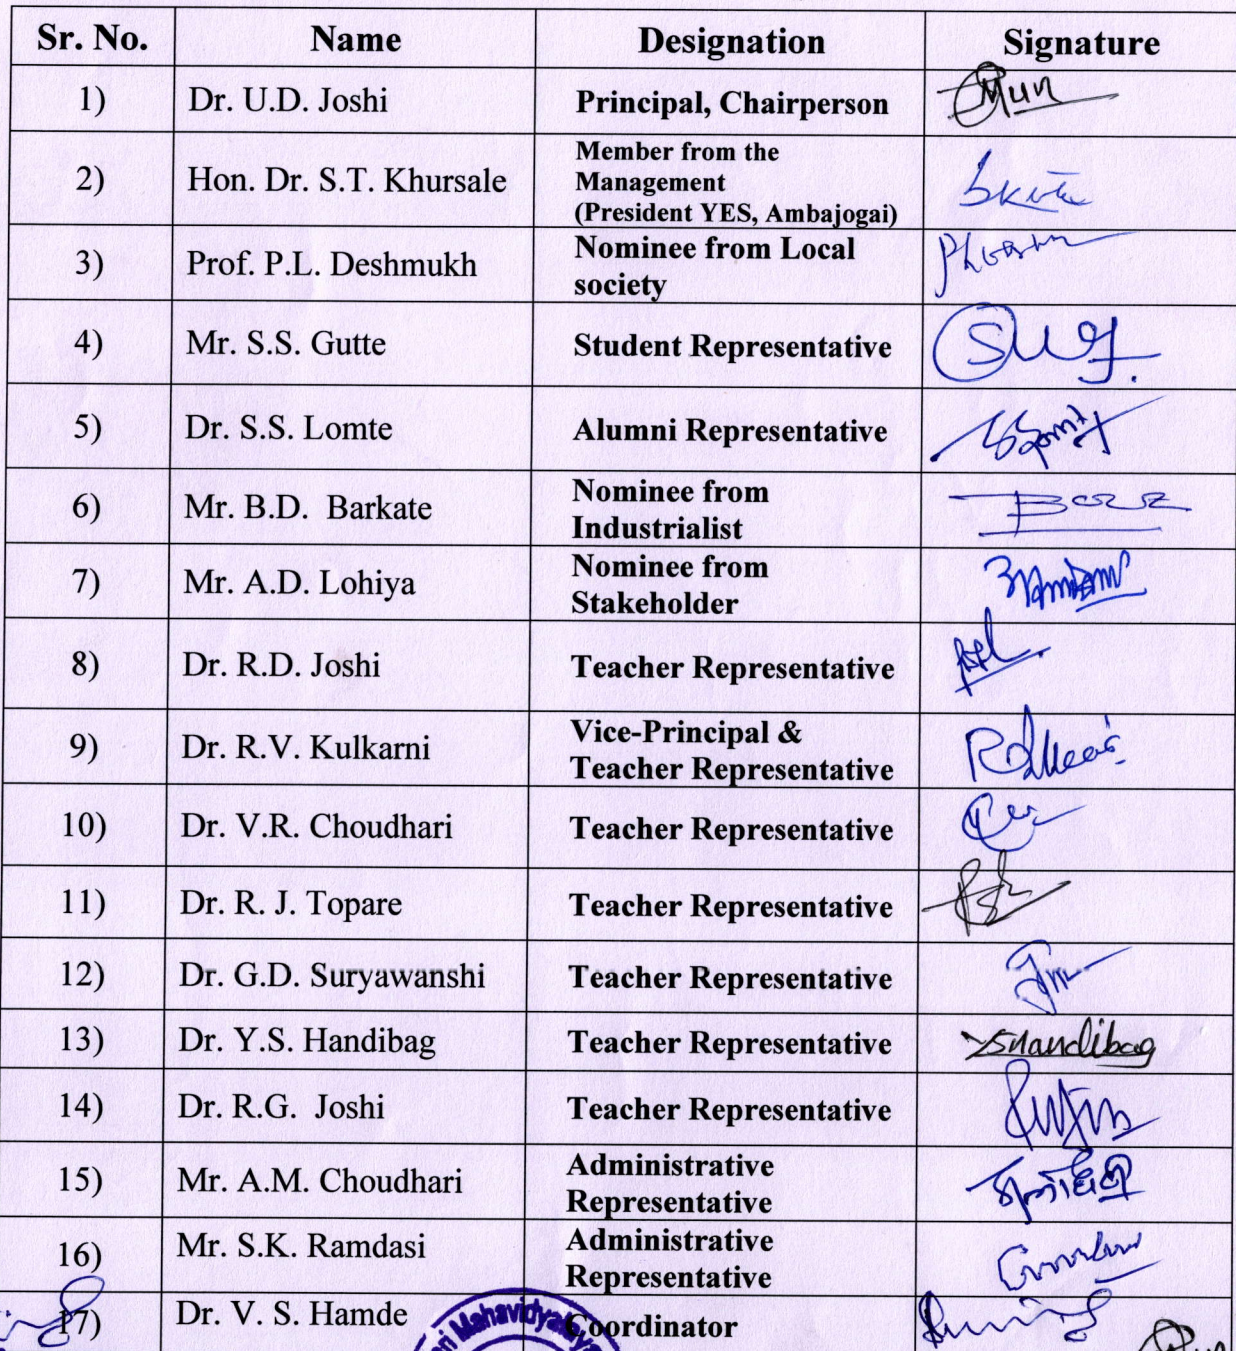 Sr. No. Name Designation Signature
1) Dr. U.D. Joshi Principal, Chairperson
2) Hon. Dr. S.T. Khursale Member from the
Management
(President YES, Ambajogai)
3) Prof. P.L. Deshmukh Nominee from Local
society
4) Mr. S.S. Gutte Student Representative
5) Dr. S.S. Lomte Alumni Representative
6) Mr. B.D. Barkate Nominee from
Industrialist
7) Mr. A.D. Lohiya Nominee from
Stakeholder
8) Dr. R.D. Joshi Teacher Representative
9) Dr. R.V. Kulkarni Vice-Principal &
Teacher Representative
10) Dr. V.R. Choudhari Teacher Representative
11) Dr. R. J. Topare Teacher Representative
12) Dr. G.D. Suryawanshi Teacher Representative
13) Dr. Y.S. Handibag Teacher Representative YSHandibag
14) Dr. R.G. Joshi Teacher Representative
15) Mr. A.M. Choudhari Administrative
Representative
16) Mr. S.K. Ramdasi Administrative
Representative
17) Dr. V. S. Hamde Coordinator
Mahavidyalaya